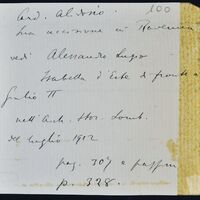 Card. Alidosio. 100
Sua uccisione in Ravenna
vedi Alessandro Luzio
Isabella d'Este di fronte a
Giulio II
nell'Arch. Stor. Lomb.
del luglio 1912
pag. 307 e passim
p. 328.